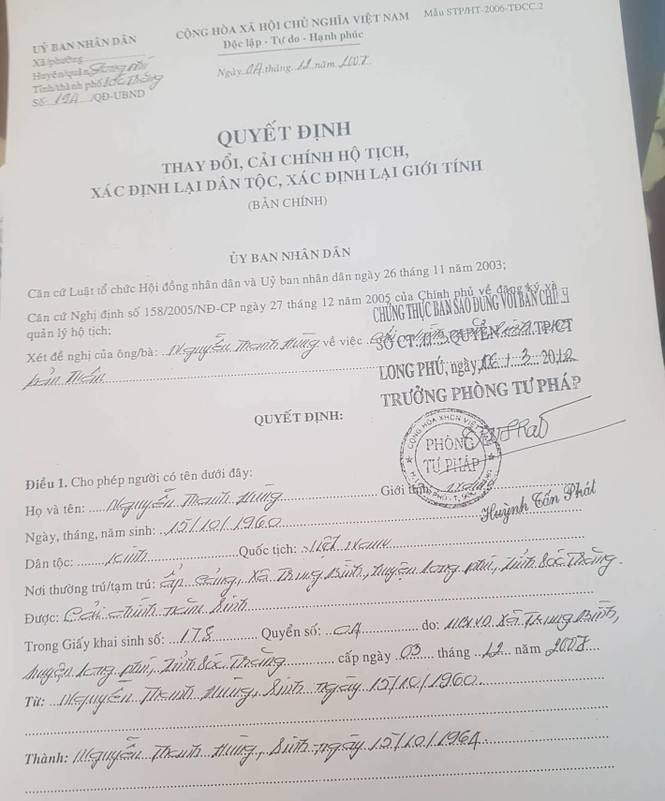 ỦY BAN NHÂN DÂN
CỘNG HÒA XÃ HỘI CHỦ NGHĨA VIỆT NAM
Mẫu STP/HT-2006-TĐCC.2
Xã/phường
Độc lập - Tự do - Hạnh phúc
Huyện/quận Long Phú
Tỉnh/thành phố Sóc Trăng
Số: 19A /QĐ-UBND
Ngày 0A tháng 12 năm 2008
QUYẾT ĐỊNH
THAY ĐỔI, CẢI CHÍNH HỘ TỊCH,
XÁC ĐỊNH LẠI DÂN TỘC, XÁC ĐỊNH LẠI GIỚI TÍNH
(BẢN CHÍNH)
ỦY BAN NHÂN DÂN
Căn cứ Luật tổ chức Hội đồng nhân dân và Uỷ ban nhân dân ngày 26 tháng 11 năm 2003;
Căn cứ Nghị định số 158/2005/NĐ-CP ngày 27 tháng 12 năm 2005 của Chính phủ về đăng ký và
quản lý hộ tịch;
CHỨNG THỰC BẢN SAO ĐÚNG VỚI BẢN CHÍNH
Xét đề nghị của ông/bà: Nguyễn Thanh Hùng về việc
SỐ CT QUYỂN TP/CT
bản thân
LONG PHÚ, ngày / 3 20
TRƯỞNG PHÒNG TƯ PHÁP
QUYẾT ĐỊNH:
CỘNG HÒA XHCN VIỆT
PHÒNG
TƯ PHÁP
Huỳnh Tấn Phát
Điều 1. Cho phép người có tên dưới đây:
Họ và tên: Nguyễn Thanh Hùng Giới tính
Ngày, tháng, năm sinh: 15/10/1960
Dân tộc: Kinh Quốc tịch: Việt Nam
Nơi thường trú/tạm trú: ấp Cảng, xã Trung Bình, huyện Long Phú, tỉnh Sóc Trăng
Được: Cải chính năm sinh
Trong Giấy khai sinh số: 178 Quyển số: 0A do: UBND xã Trung Bình,
huyện Long Phú, tỉnh Sóc Trăng cấp ngày 03 tháng 12 năm 2008
Từ: Nguyễn Thanh Hùng, sinh ngày 15/10/1960
Thành: Nguyễn Thanh Hùng, sinh ngày 15/10/196A